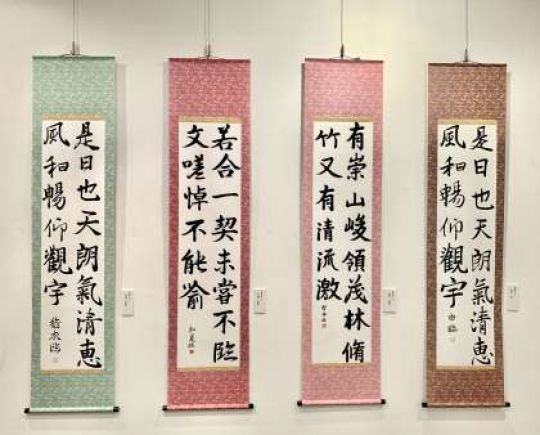 是日也天朗氣清恵
風和暢仰觀宇
有崇山峻領茂林脩
竹又有清流激
若合一契未嘗不臨
文嗟悼不能喻
是日也天朗氣清恵
風和暢仰觀宇